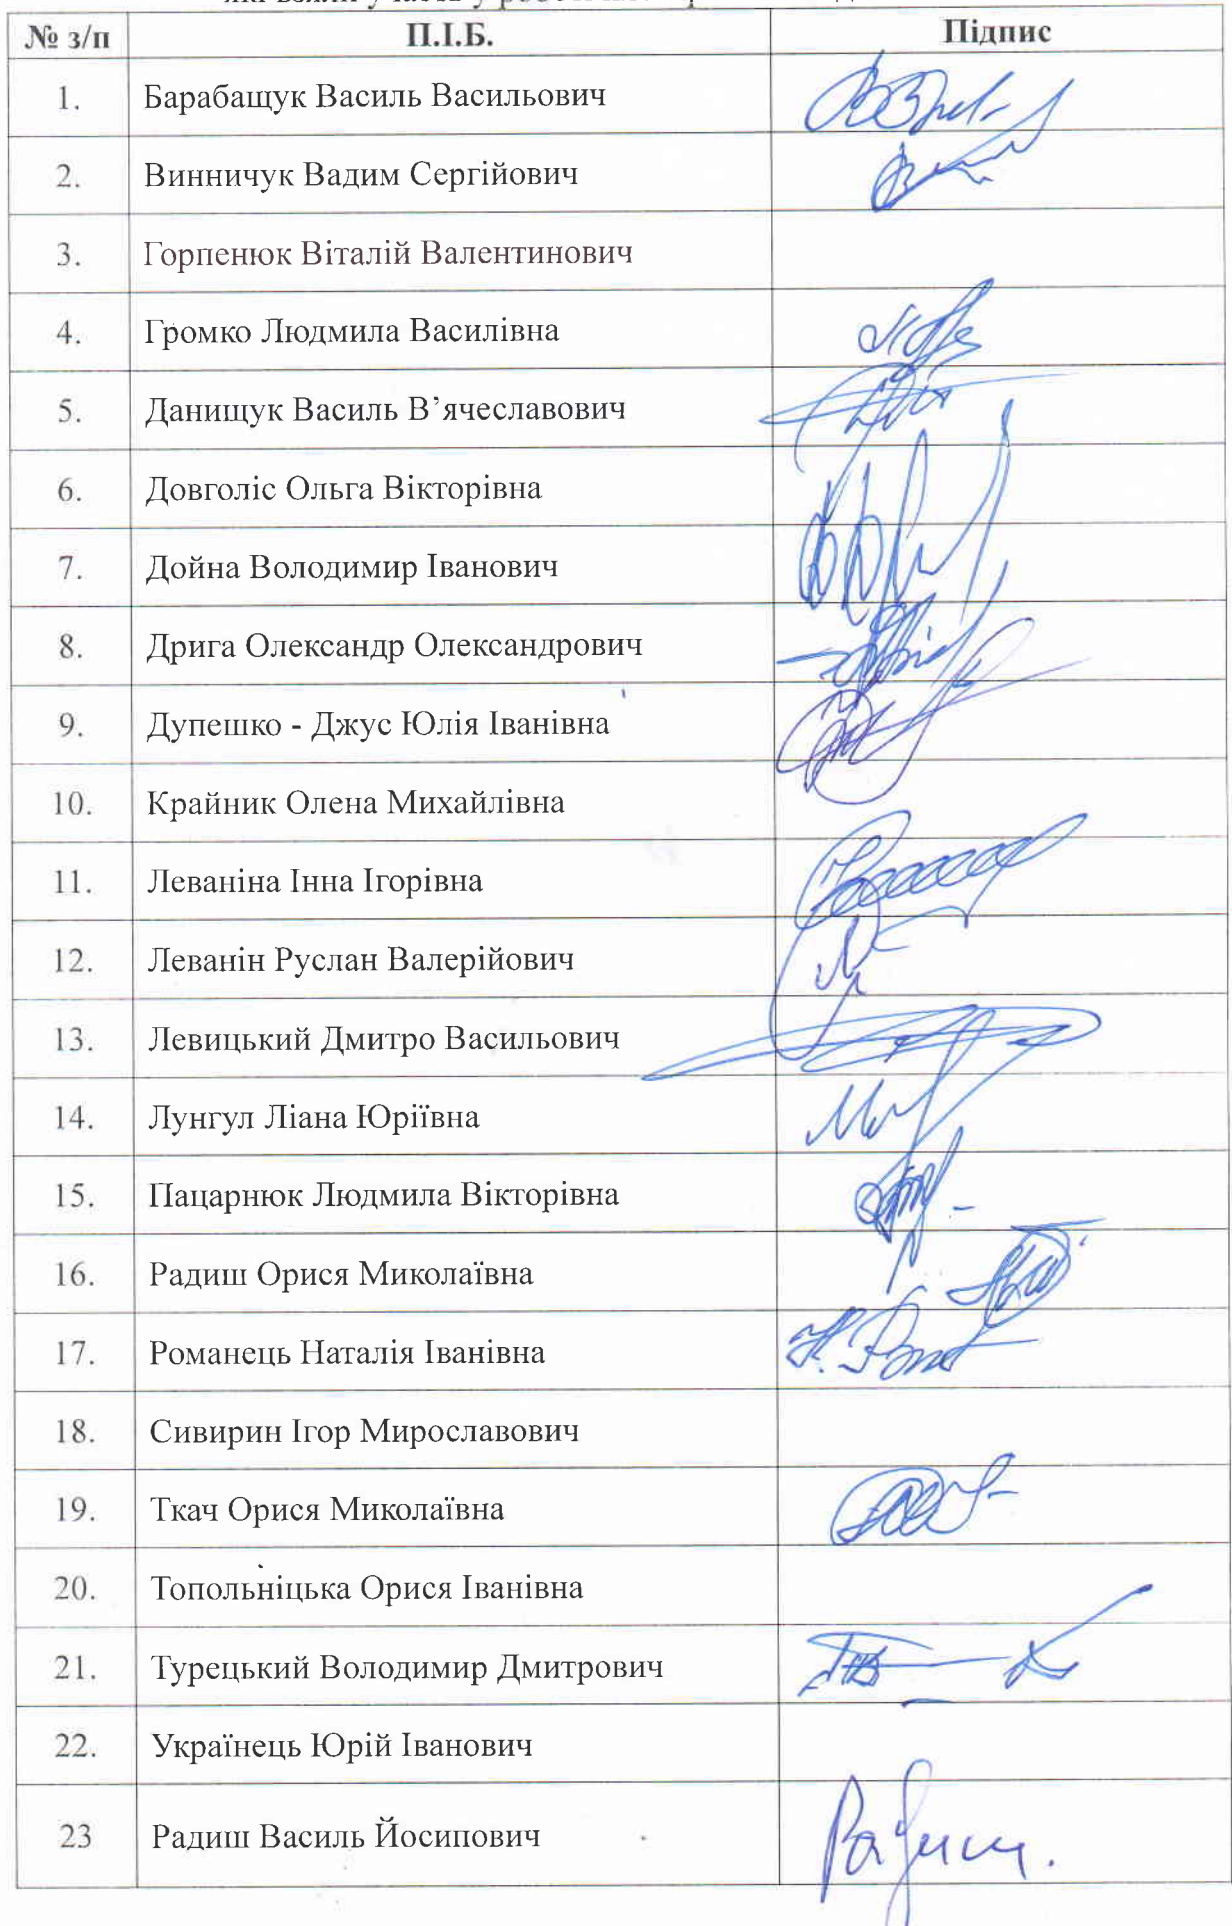 які взяли участь у роботі
№ з/п П.І.Б. Підпис
1. Барабащук Василь Васильович
2. Винничук Вадим Сергійович
3. Горпенюк Віталій Валентинович
4. Громко Людмила Василівна
5. Данищук Василь В’ячеславович
6. Довголіс Ольга Вікторівна
7. Дойна Володимир Іванович
8. Дрига Олександр Олександрович
9. Дупешко - Джус Юлія Іванівна
10. Крайник Олена Михайлівна
11. Леваніна Інна Ігорівна
12. Леванін Руслан Валерійович
13. Левицький Дмитро Васильович
14. Лунгул Ліана Юріївна
15. Пацарнюк Людмила Вікторівна
16. Радиш Орися Миколаївна
17. Романець Наталія Іванівна
18. Сивирин Ігор Мирославович
19. Ткач Орися Миколаївна
20. Топольніцька Орися Іванівна
21. Турецький Володимир Дмитрович
22. Українець Юрій Іванович
23 Радиш Василь Йосипович